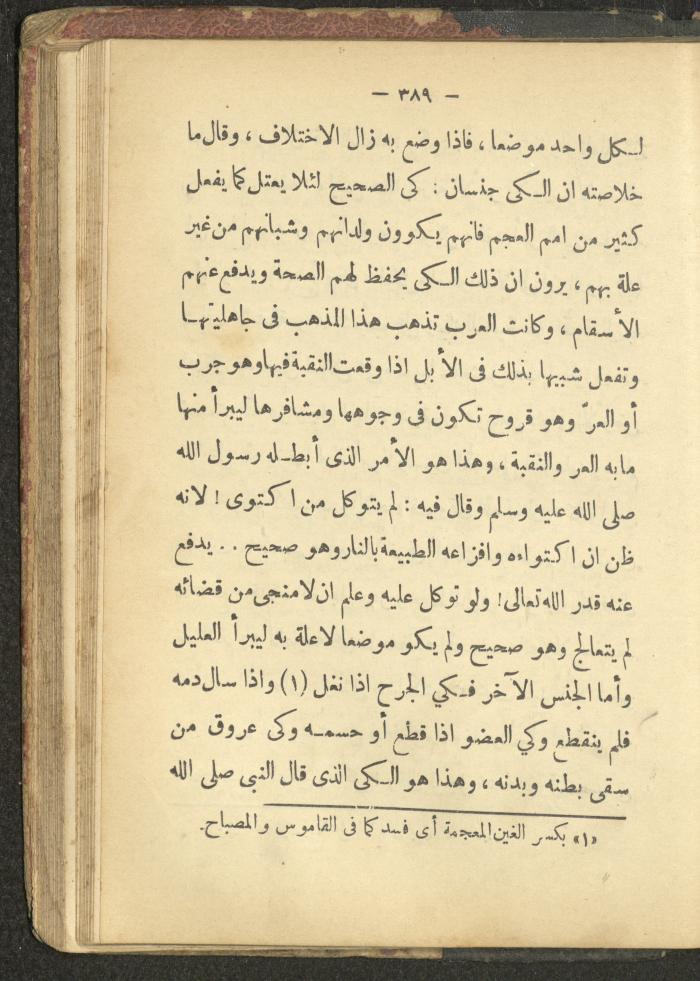 — ٣٨٩ —
لكل واحد موضعا ، فاذا وضع به زال الاختلاف ، وقال ما
خلاصته ان الكى جنسان : كى الصحيح لئلا يعتل كما يفعل
كثير من امم العجم فانهم يكوون ولدانهم وشبانهم من غير
علة بهم ، يرون ان ذلك الكى يحفظ لهم الصحة ويدفع عنهم
الأسقام ، وكانت العرب تذهب هذا المذهب فى جاهليتها
وتفعل شبيها بذلك فى الأبل اذا وقعت النقبة فيها وهو جرب
أو العرّ وهو قروح تكون فى وجوهها ومشافرها ليبرأ منها
مابه العر والنقبة ، وهذا هو الأمر الذى أبطله رسول الله
صلى الله عليه وسلم وقال فيه : لم يتوكل من اكتوى ! لانه
ظن ان اكتواءه وافزاعه الطبيعة بالنار وهو صحيح . . يدفع
عنه قدر الله تعالى ! ولو توكل عليه وعلم ان لامنجى من قضائه
لم يتعالج وهو صحيح ولم يكو موضعا لاعلة به ليبرأ العليل
وأما الجنس الآخر فكي الجرح اذا نغل (١) واذا سال دمه
فلم ينقطع وكي العضو اذا قطع أو حسمه وكى عروق من
سقى بطنه وبدنه ، وهذا هو الكى الذى قال النبى صلى الله
«١» بكسر الغين المعجمة أى فسد كما فى القاموس والمصباح.